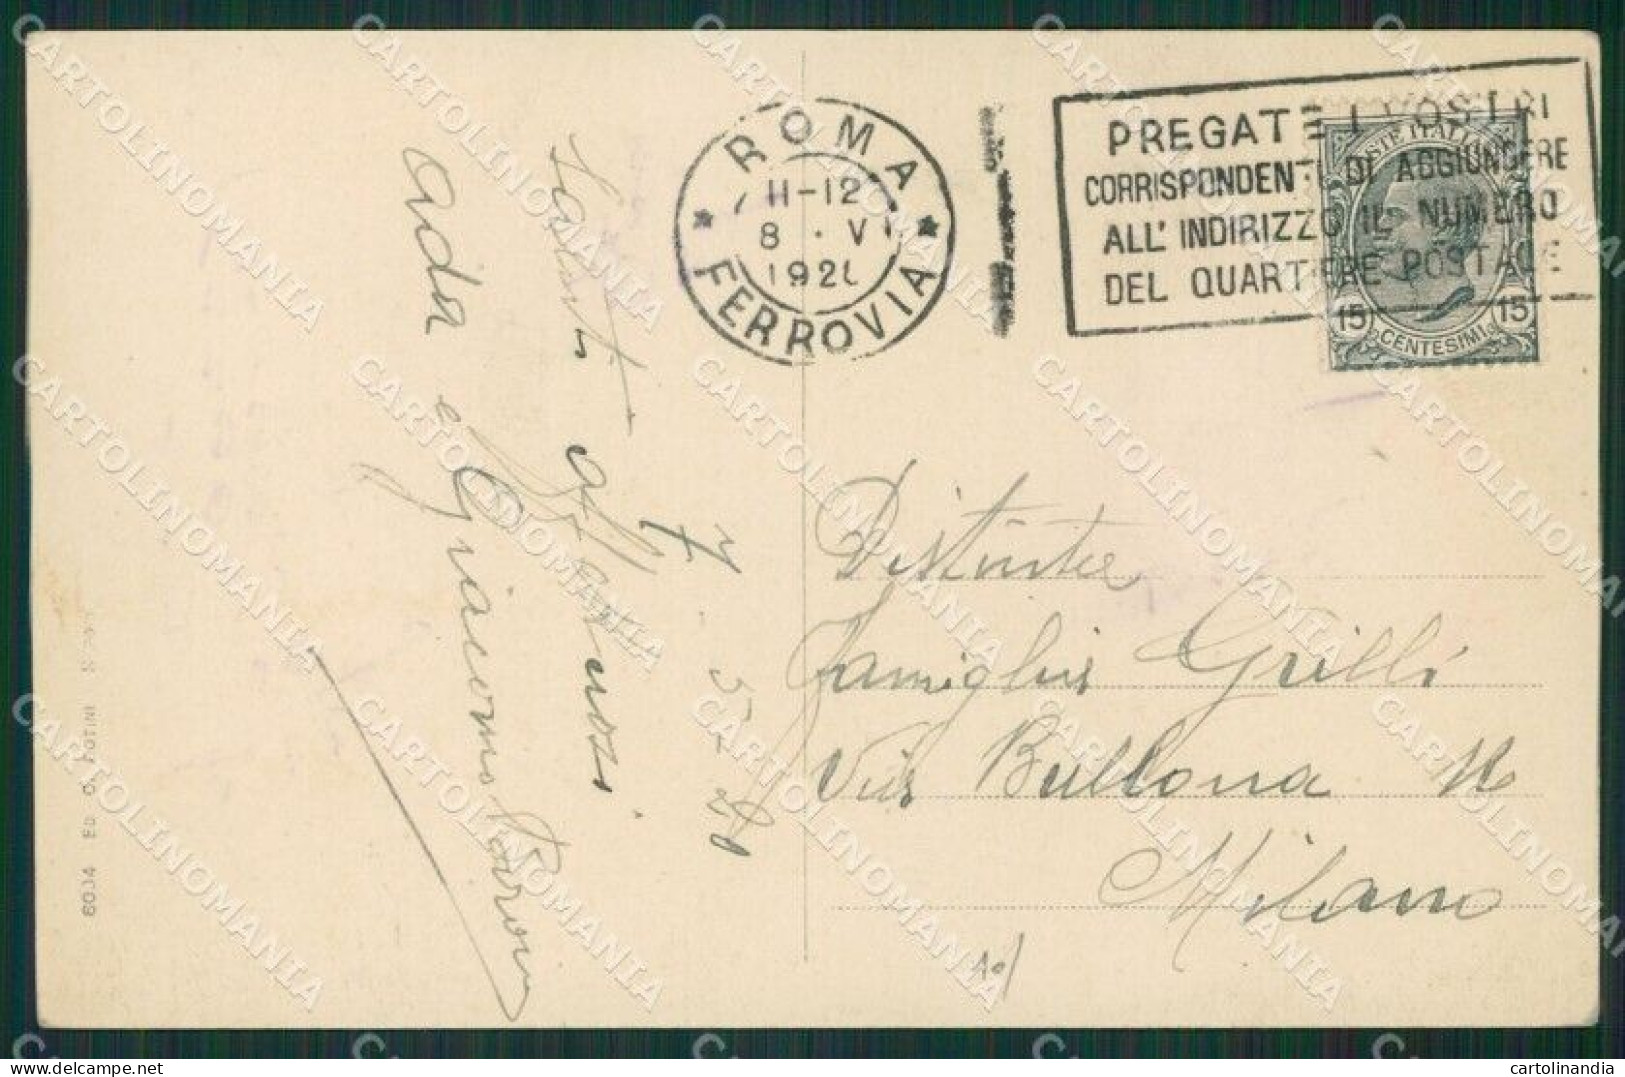 ROMA
11-12
8 . V
192
FERROVIA
PREGATE I VOSTRI
CORRISPONDENTI DI AGGIUNGERE
ALL' INDIRIZZO IL NUMERO
DEL QUARTIERE POSTALE
POSTE ITALIANE
15 CENTESIMI 15
affettuosi
7-5-20
Ada e Giacomo
Distinta
Famiglia Grilli
Via Bellona
Milano
6034 ED.
CARTOLINOMANIA
cartolinandia